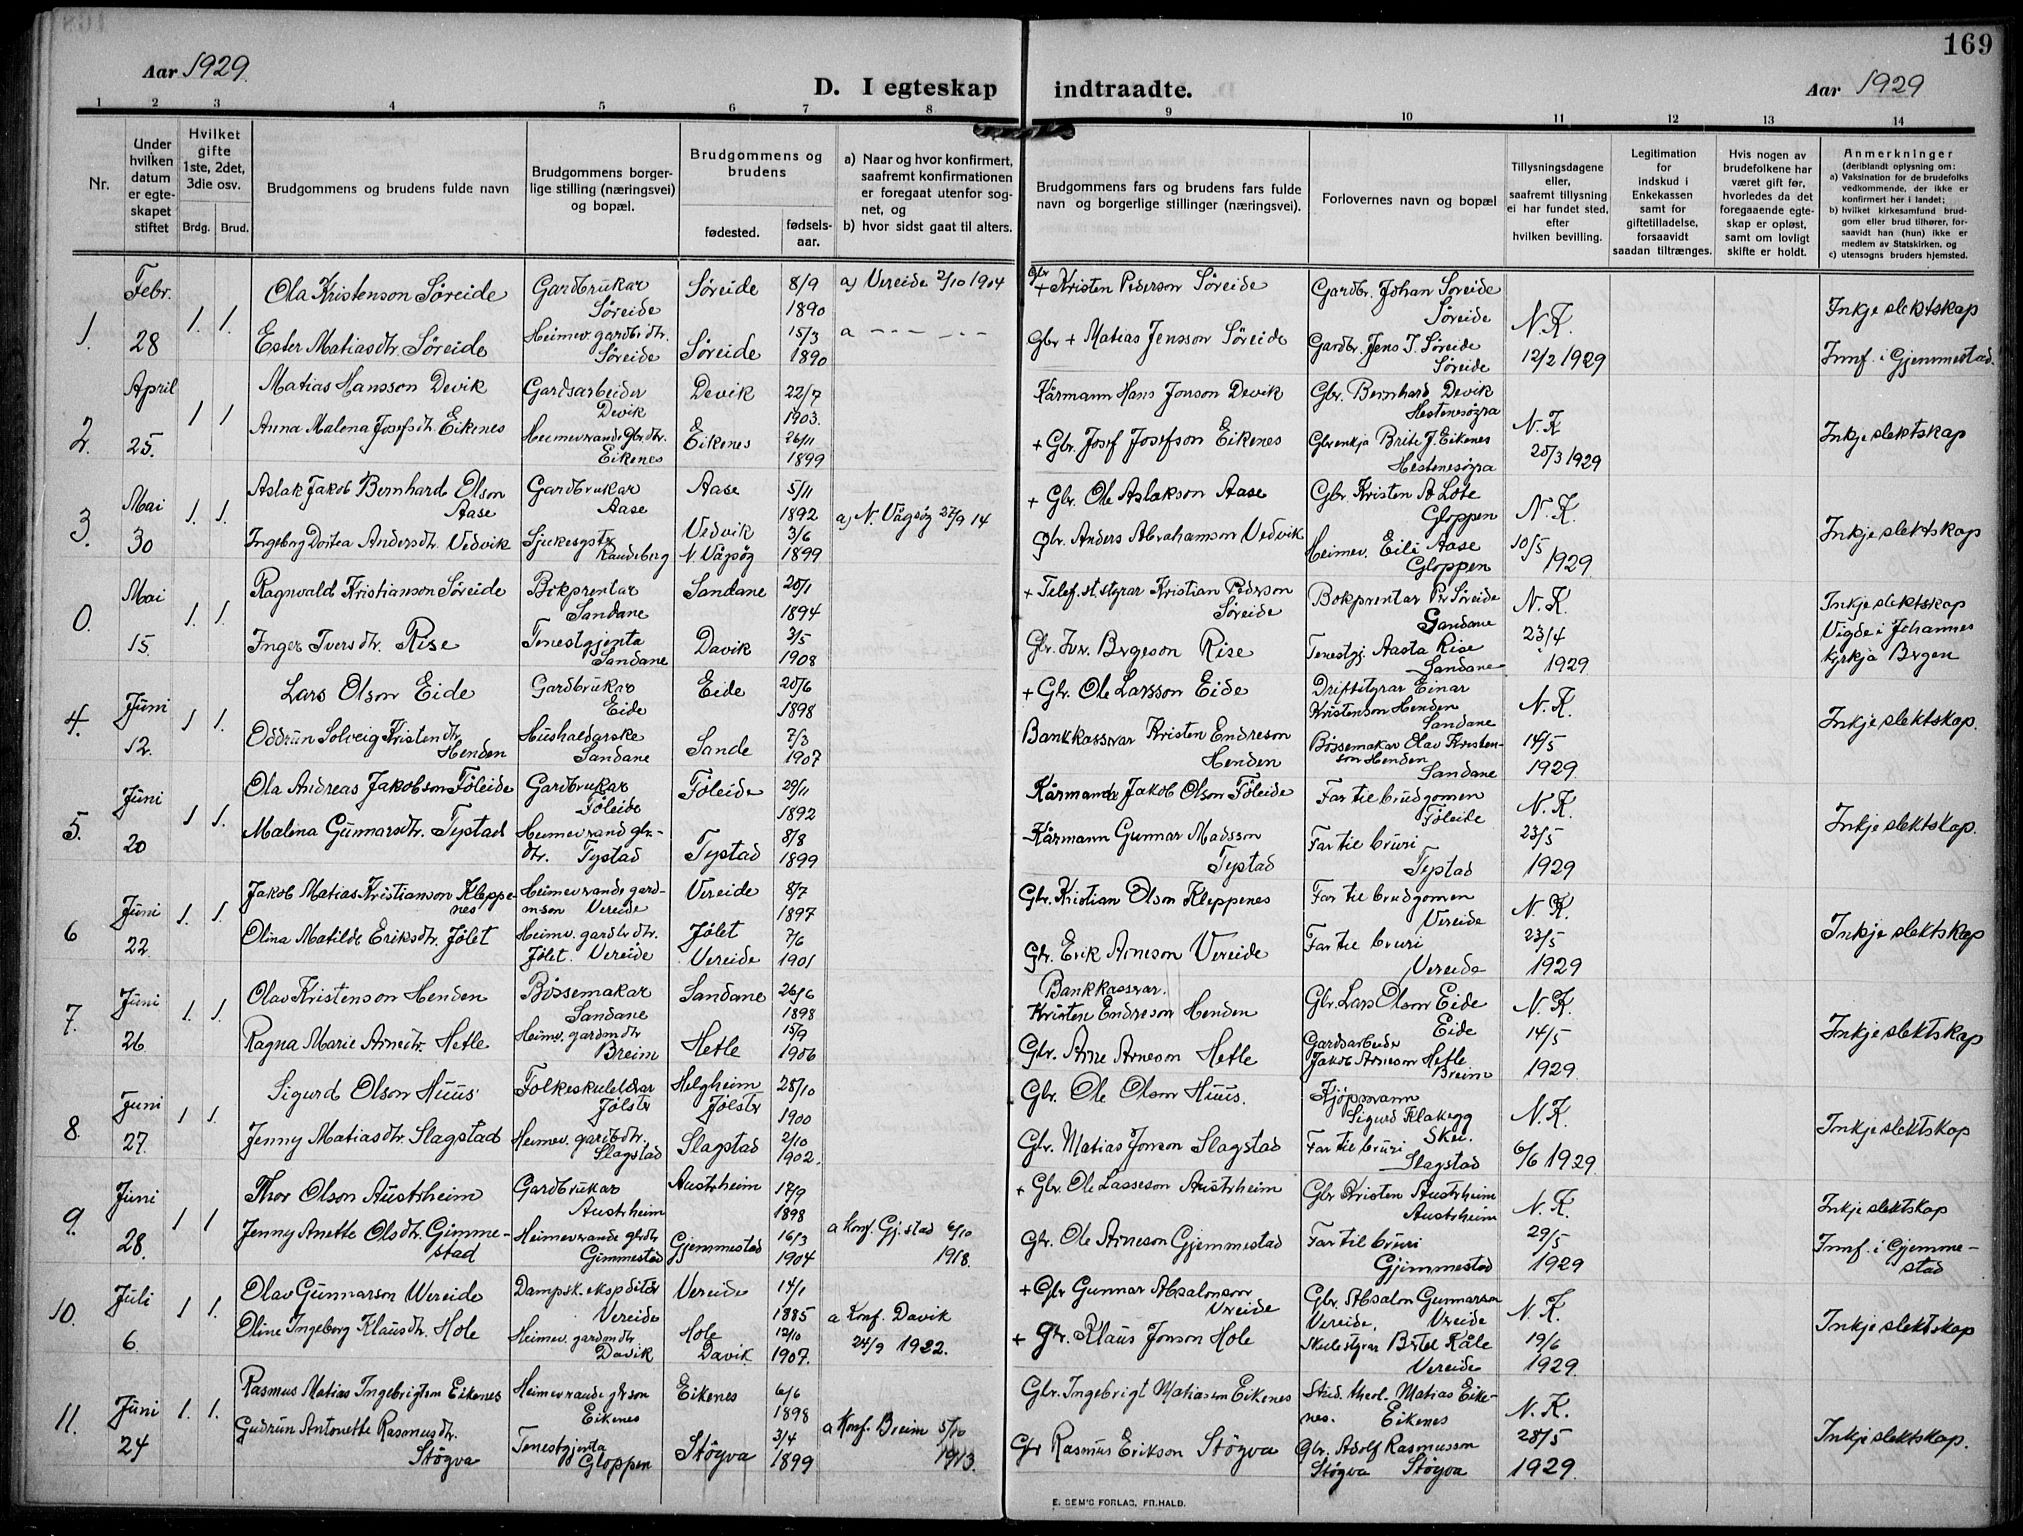 169
Aar 1929.
D. I egteskap indtraadte.
Aar 1929
1 2 3 4 5 6 7 8 9 10 11 12 13 14
Nr.
Under hvilken datum er egteskapet stiftet
Hvilket gifte 1ste, 2det, 3die osv.
Brdg. Brud.
Brudgommens og brudens fulde navn
Brudgommens borgerlige stilling (næringsvei) og bopæl.
Brudgommens og brudens
fødested. fødselsaar.
a) Naar og hvor konfirmert, saafremt konfirmationen er foregaat utenfor sognet, og
b) hvor sidst gaat til alters.
Brudgommens fars og brudens fars fulde navn og borgerlige stillinger (næringsvei).
Forlovernes navn og bopæl
Tillysningsdagene eller, saafremt tillysning ei har fundet sted, efter hvilken bevilling.
Legitimation for indskud i Enkekassen samt for giftetilladelse, forsaavidt saadan tiltrænges.
Hvis nogen av brudefolkene har været gift før, hvorledes da det foregaaende egteskap er opløst, samt om lovligt skifte er holdt.
Anmerkninger
(deriblandt oplysning om:
a) Vaksination for de brudefolks vedkommende, der ikke er konfirmert her i landet;
b) hvilket kirkesamfund brudgom eller brud tilhører, forsaavidt han (hun) ikke er medlem av Statskirken, og
c) utensogns bruders hjemsted.
1. Febr. 28 1. 1.
Ola Kristenson Søreide Gardbrukar Søreide Søreide 8/9 1890 a) Vereide 2/10 1904 Gbr + Kristen Pederson Søreide Gardbr. Johan Søreide Søreide N.K. 12/2 1929 Inkje slektskap
Ester Matiasdtr. Søreide Heimev. gardbr.dtr. Søreide Søreide 15/3 1890 a - - - - - Gbr + Matias Jensson Søreide Gardbr. Jens J. Søreide Søreide Innf. i Gjemmestad.
2. April 25. 1 1
Matias Hansson Devik Gardsarbeider Devik Devik 22/7 1903. Kårmann Hans Jonson Devik Gbr. Bernhard Devik Hestenesøyra N.K 25/3 1929 Inkje slektskap
Anna Malena Josefsdtr. Eikenes Heimeverande Gbr.dtr. Eikenes Eikenes 26/11 1899 + Gbr. Josef Josefson Eikenes Gbr.enkja Brite J. Eikenes Hestenesøyra
3. Mai 30 1. 1.
Aslak Jakob Bernhard Olson Aase Gardbrukar Aase Aase 5/11 1892 + Gbr. Ole Aslakson Aase Gbr. Kristen A Lote Gloppen N.K. 10/5 1929. Inkje slektskap
Ingeborg Dortea Andersdtr. Vedvik Sjukesystr Raudeberg Vedvik N. Vågsøy 3/6 1899 a) N. Vågsøy 27/9 14 Gbr. Anders Abrahamson Vedvik Heimev. Eili Aase Gloppen
0. Mai 15. 1. 1.
Ragnvald Kristianson Søreide Bokprentar Sandane Sandane 20/1 1894 + Telef.st.styrar Kristian Pederson Søreide Bokprentar Per Søreide Sandane N.K. 23/4 1929 Inkje slektskap
Inger Iversdtr. Rise Tenestgjenta Sandane Davik 3/5 1908 Gbr. Iver Bergeson Rise Tenestgj. Aasta Rise Sandane Vigde i Johannes kyrkja Bergen
4. Juni 12. 1 1.
Lars Olson Eide Gardbrukar Eide Eide 20/6 1898 + Gbr. Ole Larsson Eide Driftstyrar Einar Kristenson Henden Sandane N.K. 14/5 1929. Inkje slektskap.
Oddrun Solveig Kristendtr Henden Hushaldarske Sandane Sande 7/3 1907 Bankkasserar Kristen Endreson Henden Bössemakar Olav Kristenson Henden Sandane
5. Juni 20 1 1.
Ola Andreas Jakobson Föleide Gardbrukar Föleide Föleide 29/11 1892 Kårmann Jakob Olson Föleide Far til brudgomen Föleide N.K. 23/5 1929 Inkje slektskap.
Malena Gunnarsdtr. Tystad Heimeverand gbr.-dtr. Tystad Tystad 8/8 1899 Kårmann Gunnar Madsson Tystad Far til bruri Tystad
6 Juni 22 1. 1.
Jakob Matias Kristianson Kleppenes Heimeverande gardm.son Vereide Vereide 8/7 1897 Gbr. Kristian Olson Kleppenes Far til brudgomen Vereide N.K. 23/5 1929 Inkje slektskap
Olina Matilde Eriksdtr. Jölet Heimev. gardbr.dtr. Jölet. Vereide Jölet Vereide 7/6 1901 Gbr. Erik Arneson Vereide Far til bruri Vereide
7. Juni 26 1. 1.
Olav Kristenson Henden Bössemakar Sandane Sandane 26/6 1898 Bankkasserar. Kristen Endreson Henden Gbr. Lars Olson Eide Eide N.K. 14/5 1929. Inkje slektskap
Ragna Marie Arnedtr. Hetle Heimev. gardm dtr Breim Hetle 15/9 1906 Gbr. Arne Arneson Hetle Gardsarbeider Jakob Arneson Hetle Breim
8. Juni 27. 1 1.
Sigurd Olson Huus Folkeskulelærar Jölster Helgheim Jölster 28/10 1900 Gbr. Ole Olson Huus. Kjöpmann Sigurd Klakegg Skei. N.K. 6/6 1929. Inkje slektskap
Jenny Matiasdtr. Slagstad Heimev. gardb dtr. Slagstad Slagstad 2/10 1902. Gbr. Matias Jonson Slagstad Far til bruri Slagstad
9. Juni 28. 1 1
Thor Olson Austrheim Gardbrukar Austrheim Austrheim 17/9 1898 + Gbr. Ole Lasseson Austrheim Gbr Kristen Austrheim Austrheim N.K. 29/5 1929 Inkje slektskap
Jenny Anette Olsdtr. Gimmestad Heimeverande gbr dtr Gimmestad Gjemmestad 16/3 1904 a Konf. Gj.stad 6/10 1918. Gbr. Ole Arneson Gjemmestad Far til bruri Gjimmestad Innf. i Gjemmestad
10. Juli 6. 1 1.
Olav Gunnarson Vereide Dampsk.ekspeditör Vereide Vereide 14/1 1885 + Gbr Gunnar Absalonson Vereide Gbr. Absalon Gunnarson Vereide, Vereide N.K. 19/6 1929. Inkje slektskap
Oline Ingeborg Klausdtr. Hole Heimev. gardm dtr Davik Hole Davik 12/10 1907. a Konf. Davik 24/9 1922. + Gbr. Klaus Jonson Hole Skulestyrar Bertel Kåle Vereide
11. Juni 24 1. 1.
Rasmus Matias Ingebrigtson Eikenes Heimeverande gbr son Eikenes Eikenes 6/6 1898 Gbr. Ingebrigt Matiasson Eikenes Stud. theol. Matias Eikenes. Eikenes N.K. 28/5 1929. Inkje slektskap.
Gudrun Antonette Rasmusdtr. Stögva Tenestgjenta Gloppen Stögva 3/4 1899 a Konf. Breim 5/10 1913. Gbr Rasmus Erikson Stögva Gbr. Adolf Rasmusson Stögva Stögva
E. SEM'S FORLAG, FR.HALD.